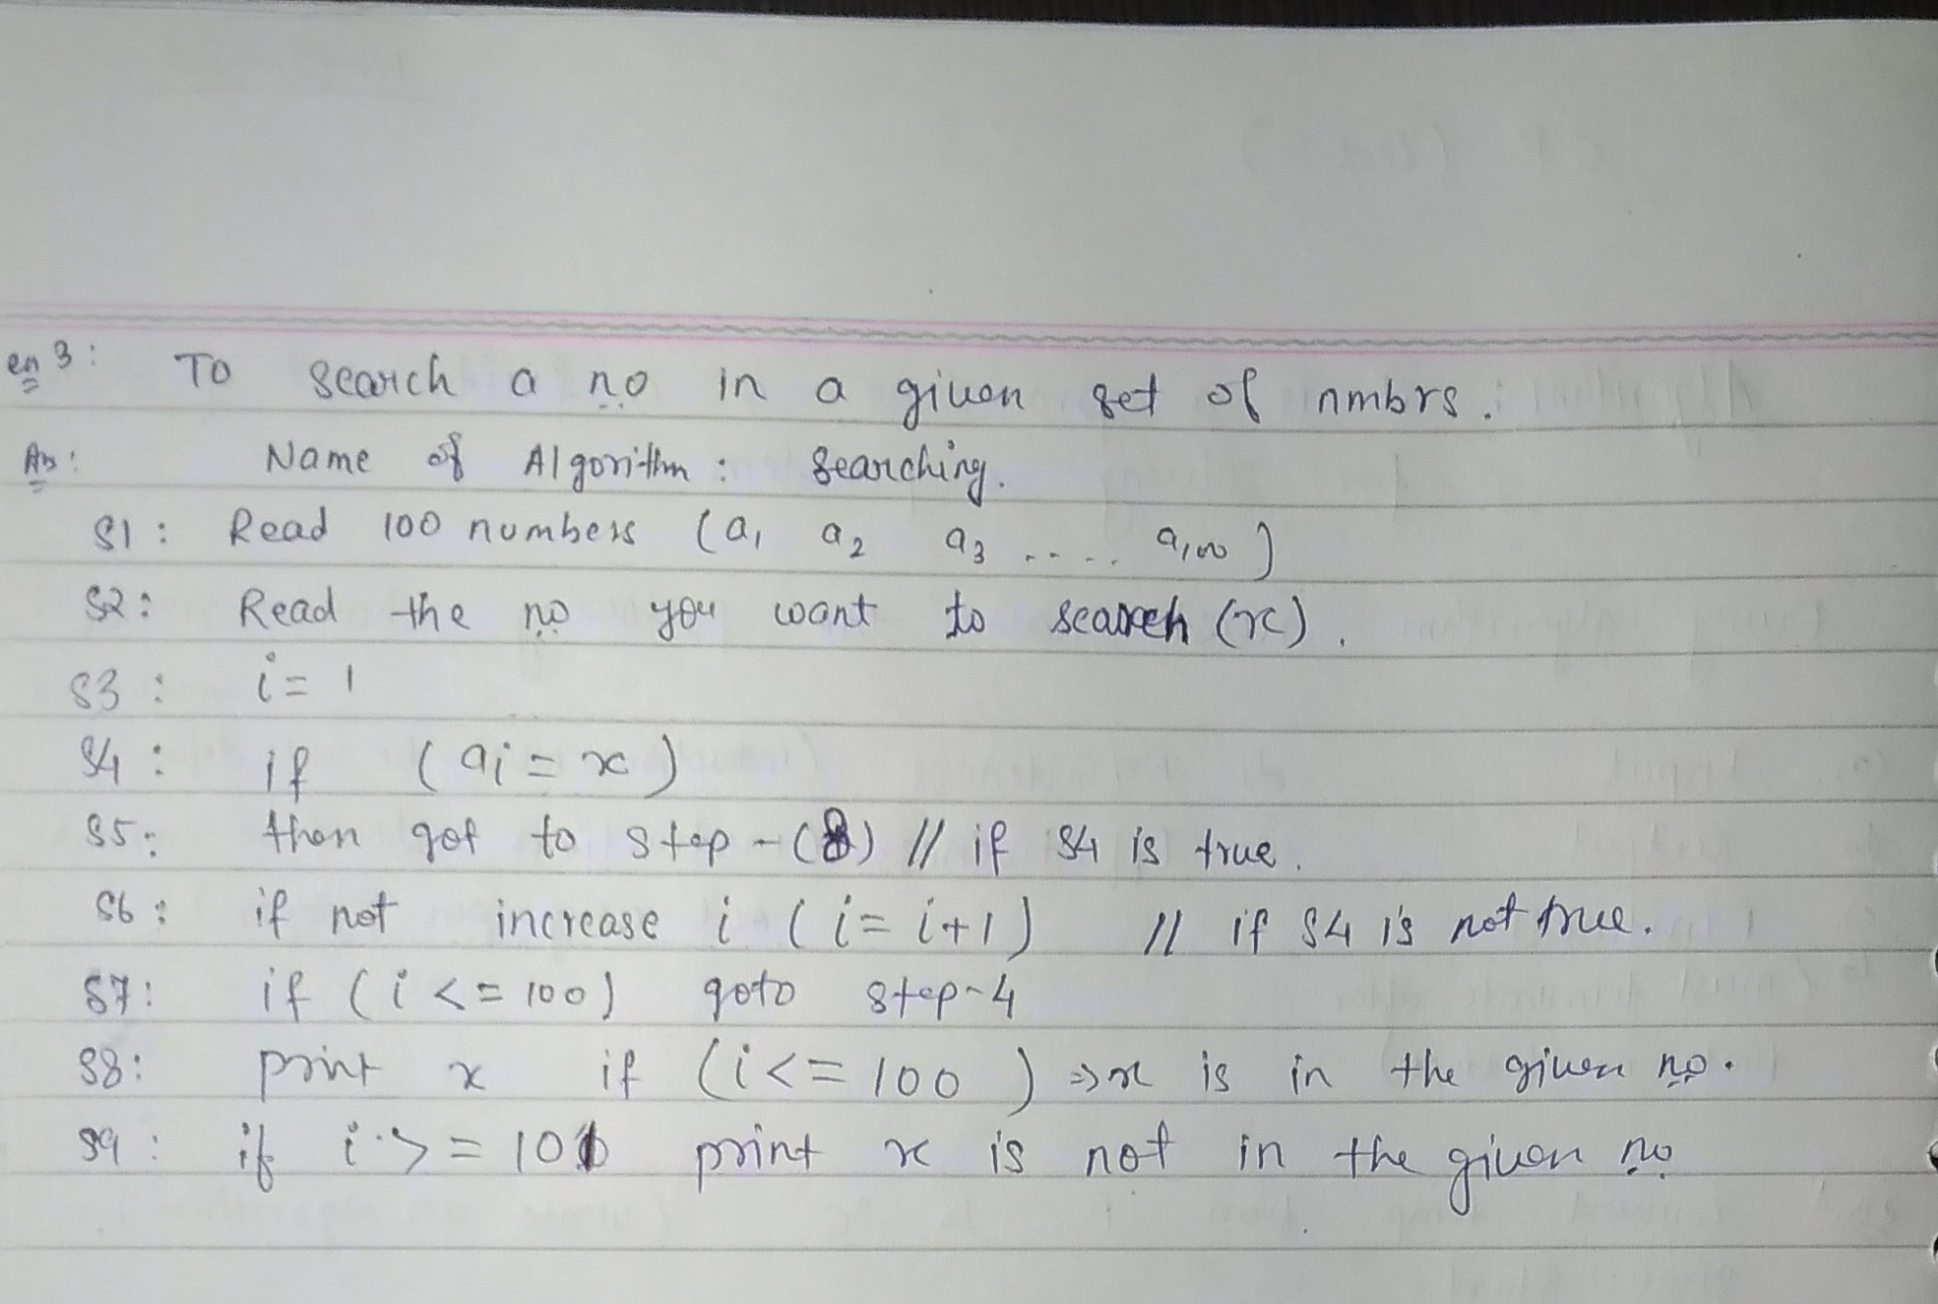 en 3: To search a no in a given set of nmbrs.
An: Name of Algorithm: Searching.
S1: Read 100 numbers (a1 a2 a3 ..... a100)
S2: Read the no you want to search (x).
S3: i = 1
S4: if (ai = x)
S5: then got to step - (8) // if S4 is true.
S6: if not increase i (i = i+1) // if S4 is not true.
S7: if (i <= 100) goto step-4
S8: print x if (i <= 100) => x is in the given no.
S9: if i >= 101 print x is not in the given no